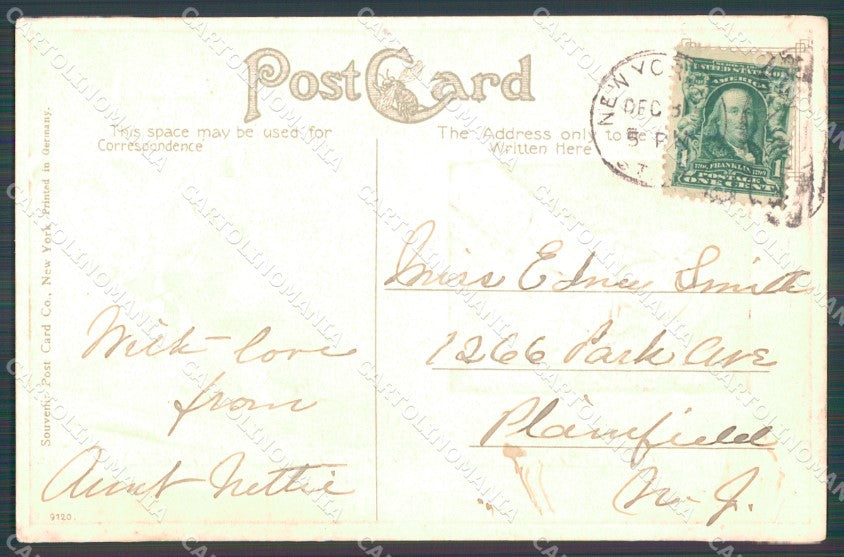 Post Card
This space may be used for
Correspondence
The Address only to be
Written Here
NEW YORK
DEC 31
5 PM
UNITED STATES
OF AMERICA
1706. FRANKLIN 1790
POSTAGE
ONE CENT
1
Souvenir Post Card Co., New York, Printed in Germany.
With love
from
Aunt Nettie
9120.
Miss Edna Smith
1266 Park Ave
Plainfield
N. J.
CARTOLINOMANIA